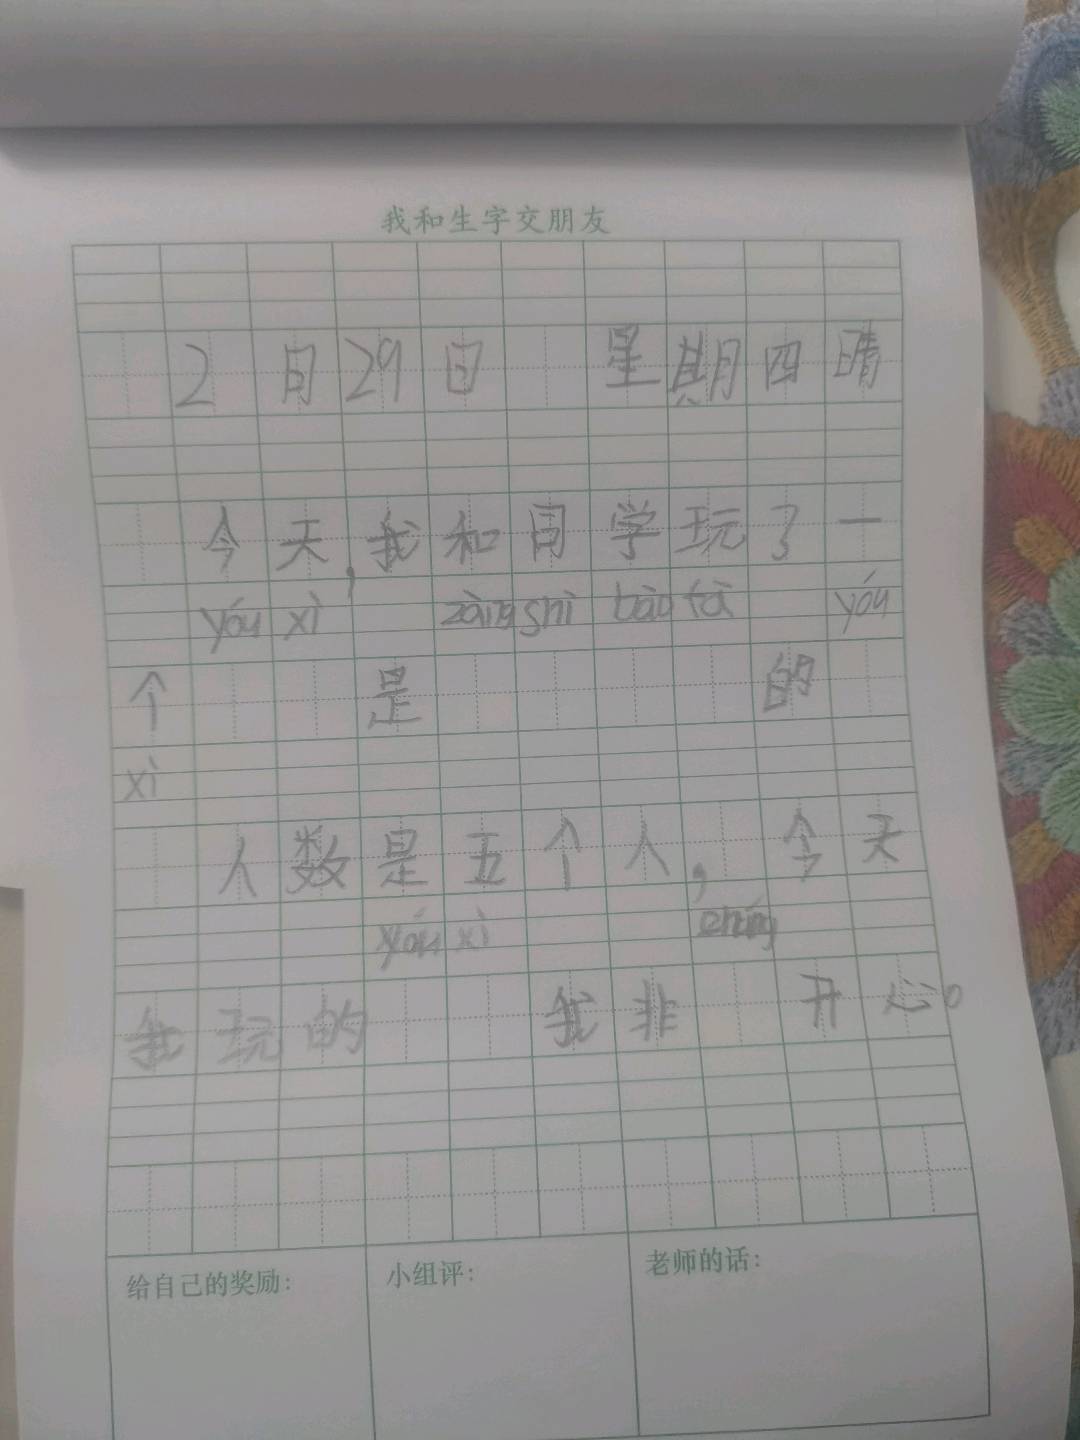 我和生字交朋友
2日29日 星期四晴
今天,我和同学玩了一
yóu xì zàng shì bào tà yóu
个 是 的
xì
人数是五个人,今天
yóu xì
我玩的 我非 开心。
给自己的奖励: 小组评: 老师的话: